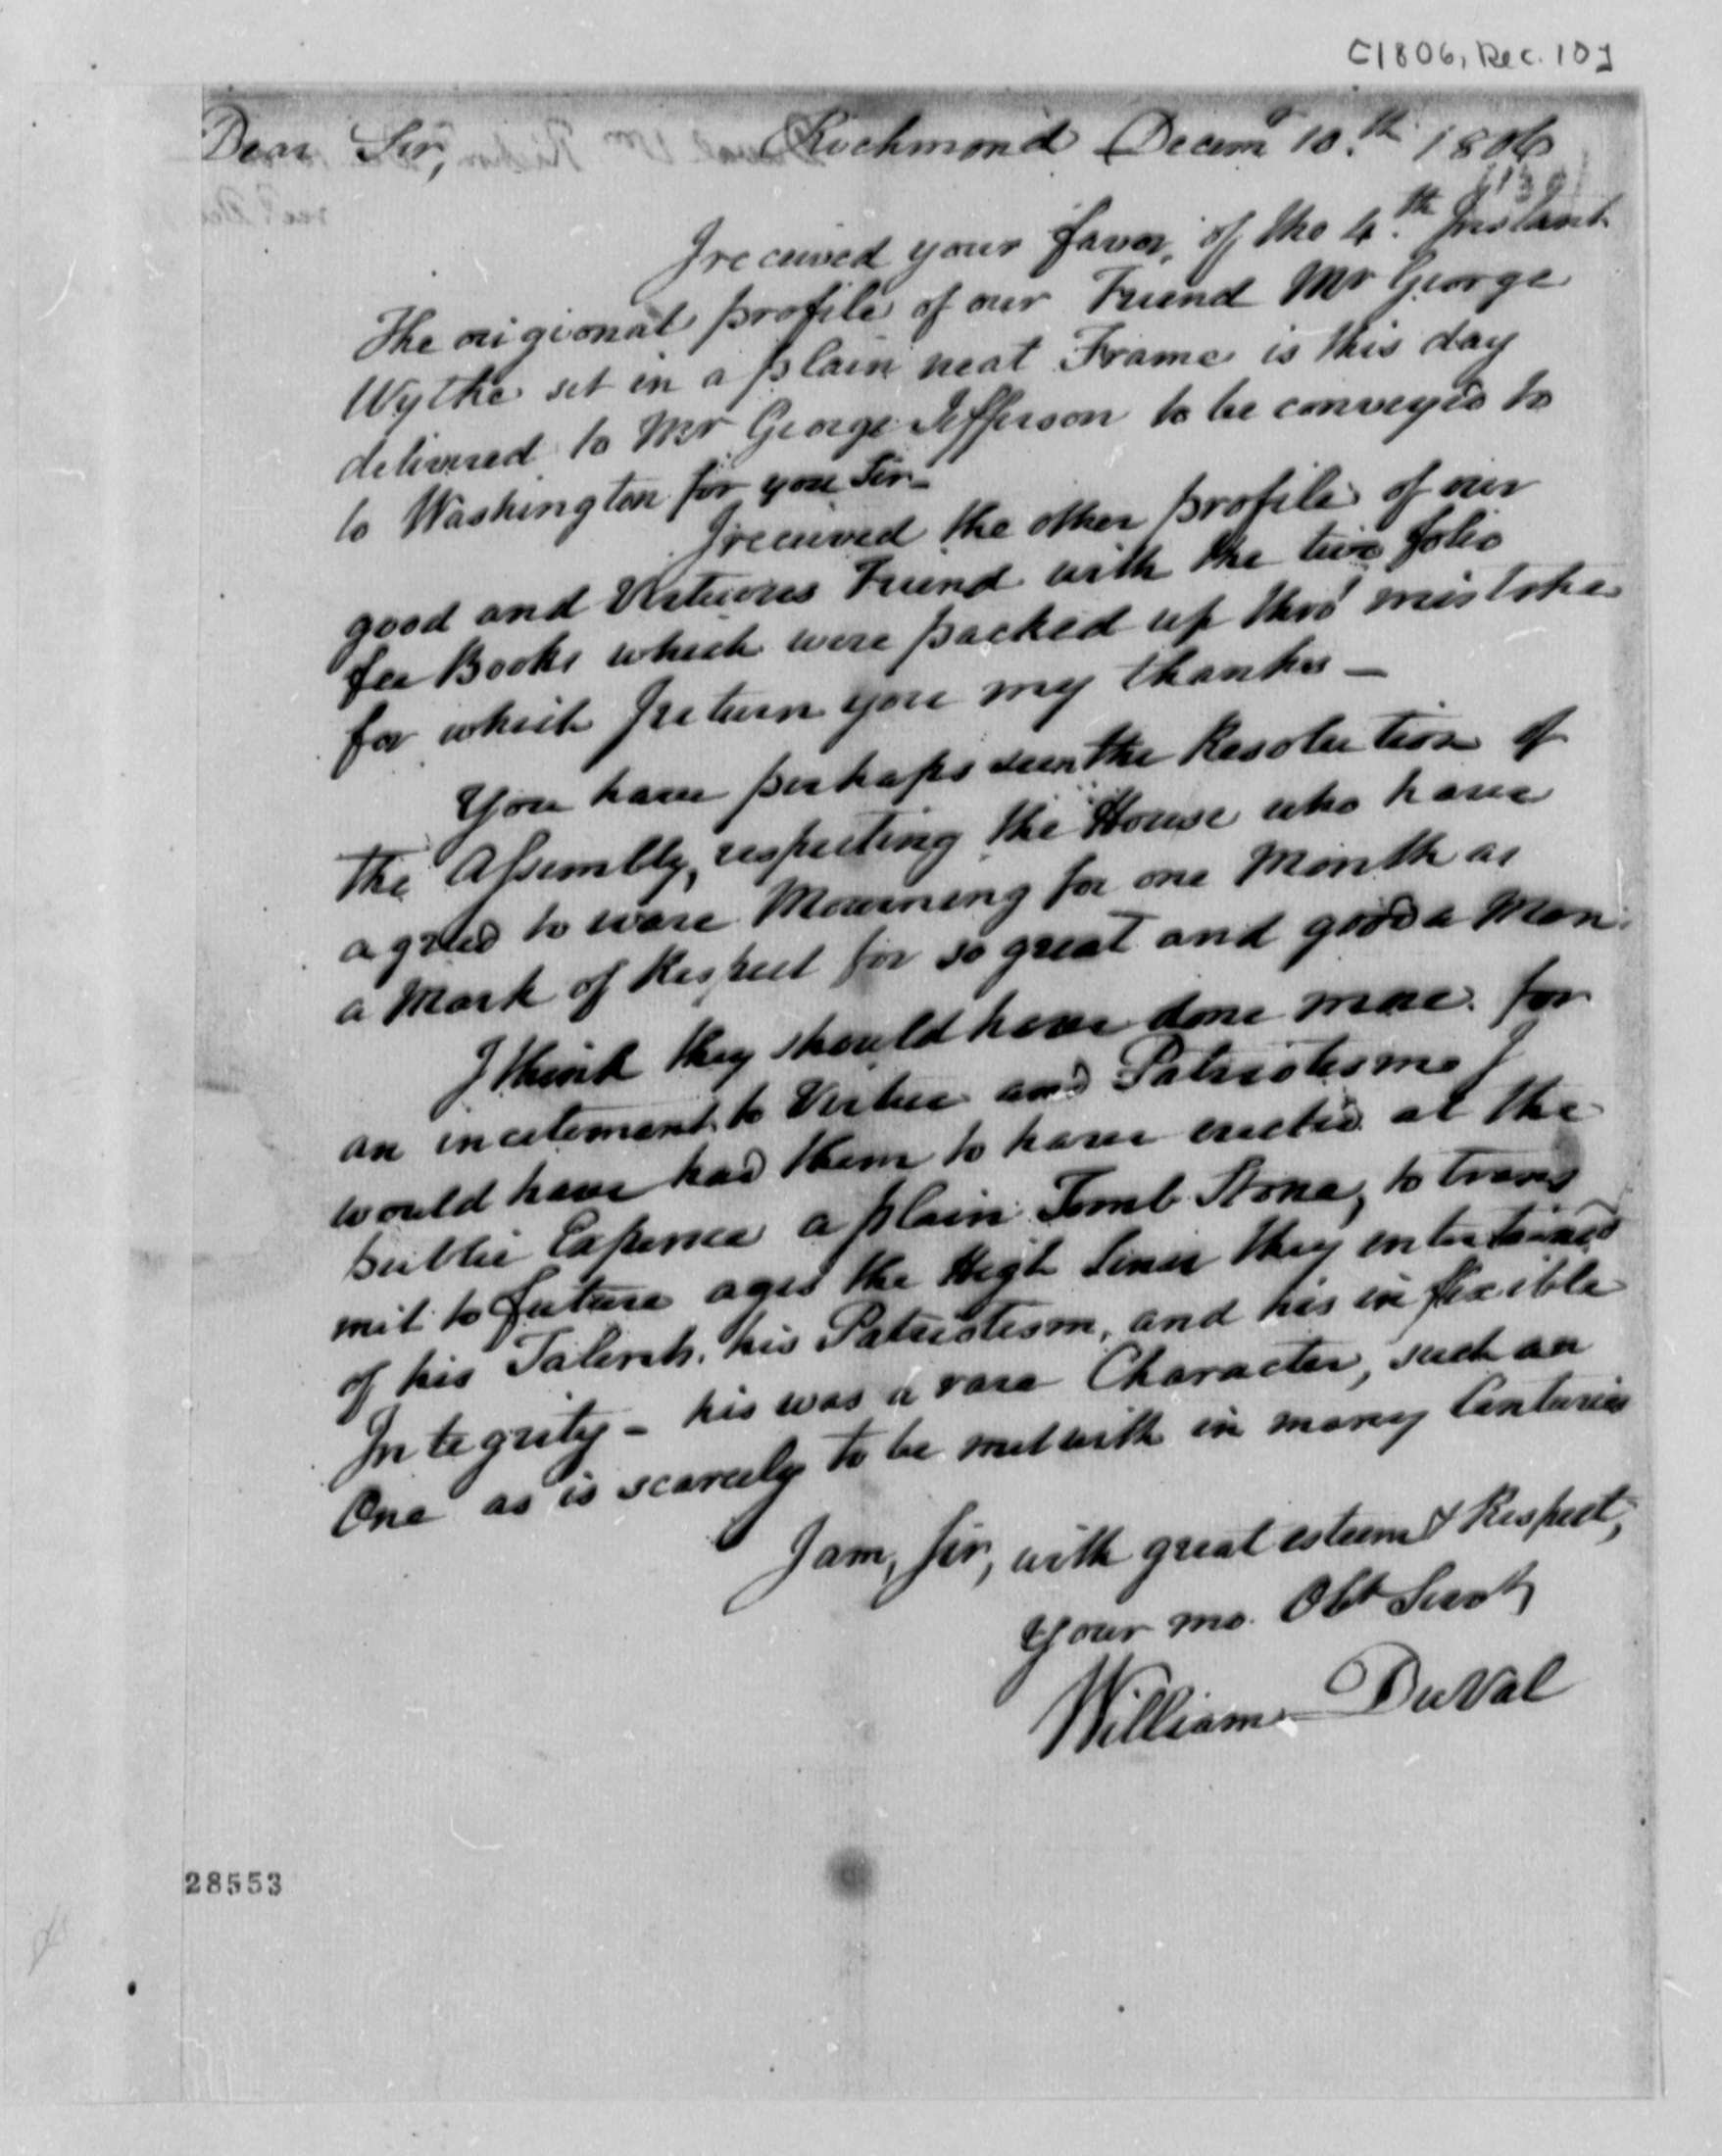 [1806, Dec. 10]
Dear Sir, Richmond Decemr 10.th 1806
I received your favor, of the 4.th Instant
The origional profile of our Friend Mr George
Wythe set in a plain neat Frame is this day
delivered to Mr George Jefferson to be conveyed to
to Washington for you Sir-
I received the other profile of our
good and Virtuous Friend with the two folio
fee Books which were packed up thro' mistake
for which I return you my thanks —
You have perhaps seen the Resolution of
the Assembly, respecting the House who have
agreed to ware Mourning for one Month as
a Mark of Respect for so great and good a Man.
I think they should have done more. for
an incitement to Virtue and Patriotism I
would have had them to have erected at the
public Expence a plain Tomb Stone, to trans
mit to future ages the High Sense they entertained
of his Talents, his Patriotism, and his inflexible
Integrity - his was a rare Character, such an
One as is scarcely to be met with in many Centuries
I am, Sir, with great esteem & Respect,
Your mo. Obt Servt,
William DuVal
28553